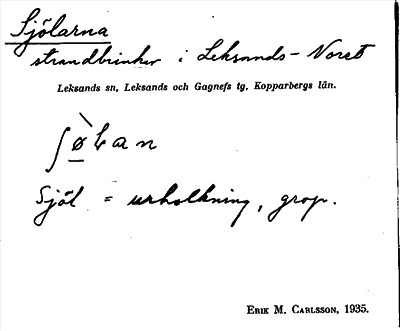 Sjölarna
strandbrinkar i Leksands-Noret
Leksands sn, Leksands och Gagnefs tg, Kopparbergs län.
Sjöl = urholkning, grop.
Erik M. Carlsson, 1935.